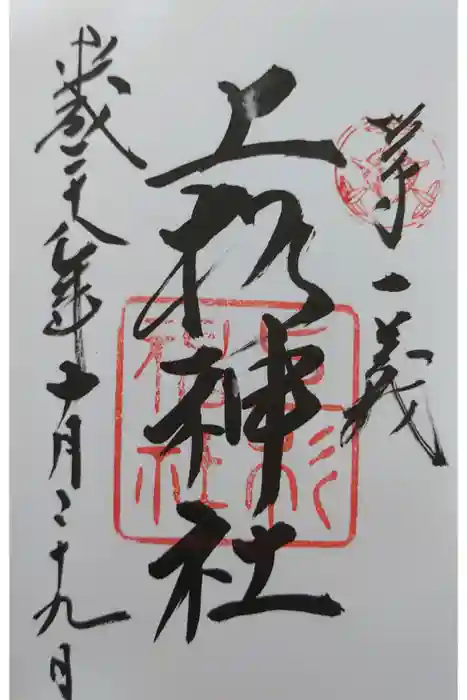 第一義
上杉神社
上杉
神社
平成二十八年十月二十九日